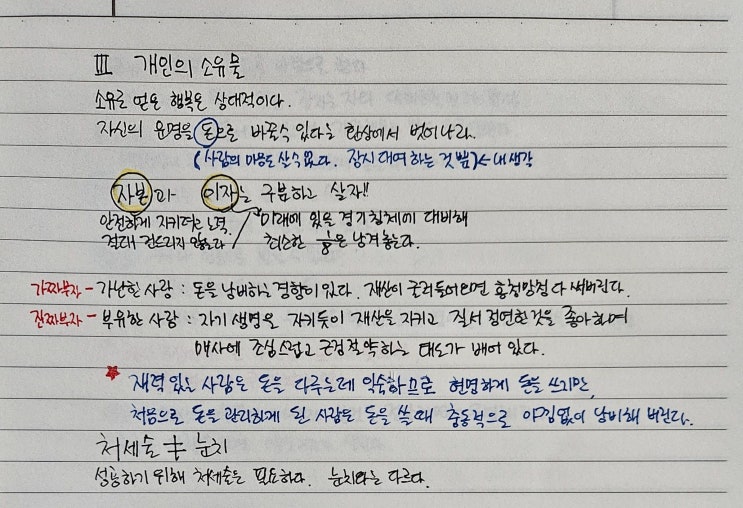 Ⅲ 개인의 소유물
소유로 얻은 행복은 상대적이다.
자신의 운명을 돈으로 바꿀수 있다는 환상에서 벗어나라.
(사람의 마음도 살수 없다. 잠시 대여 하는 것 뿐)← 내 생각
자본과 이자는 구분하고 살자!!
안전하게 지키려고 노력. 미래에 있을 경기침체에 대비해
절대 건드리지 않는다 최소한 1/8은 남겨놓는다.
가짜부자 - 가난한 사람 : 돈을 낭비하는 경향이 있다. 재산이 굴러들어오면 흥청망청 다 써버린다.
진짜부자 - 부유한 사람 : 자기 생명을 지키듯이 재산을 지키고 질서 정연한것을 좋아하며
매사에 조심스럽고 근검절약하는 태도가 배어 있다.
★ 재력 있는 사람은 돈을 다루는데 익숙하므로 현명하게 돈을 쓰지만,
처음으로 돈을 관리하게 된 사람은 돈을 쓸 때 충동적으로 아낌없이 낭비해 버린다.
처세술 ≠ 눈치
성공하기 위해 처세술은 필요하다. 눈치와는 다르다.